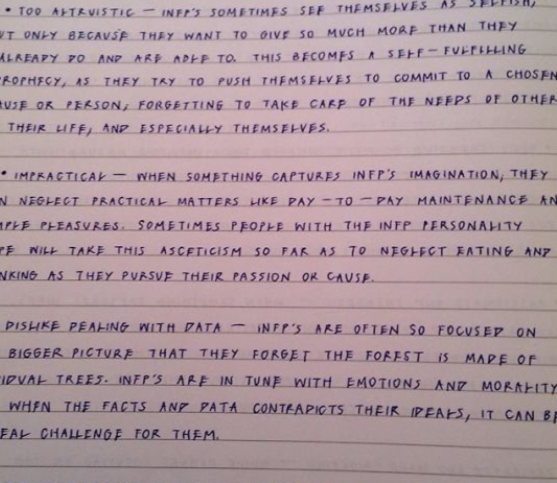 • TOO ALTRUISTIC — INFP'S SOMETIMES SEE THEMSELVES AS SELFISH,
UT ONLY BECAUSE THEY WANT TO GIVE SO MUCH MORE THAN THEY
ALREADY DO AND ARE ABLE TO. THIS BECOMES A SELF-FULFILLING
ROPHECY, AS THEY TRY TO PUSH THEMSELVES TO COMMIT TO A CHOSEN
AUSE OR PERSON, FORGETTING TO TAKE CARE OF THE NEEDS OF OTHER
THEIR LIFE, AND ESPECIALLY THEMSELVES.
• IMPRACTICAL — WHEN SOMETHING CAPTURES INFP'S IMAGINATION, THEY
N NEGLECT PRACTICAL MATTERS LIKE DAY-TO-DAY MAINTENANCE AN
MPLE PLEASURES. SOMETIMES PEOPLE WITH THE INFP PERSONALITY
PE WILL TAKE THIS ASCETICISM SO FAR AS TO NEGLECT EATING AND
NKING AS THEY PURSUE THEIR PASSION OR CAUSE.
DISLIKE DEALING WITH DATA — INFP'S ARE OFTEN SO FOCUSED ON
BIGGER PICTURE THAT THEY FORGET THE FOREST IS MADE OF
IDUAL TREES. INFP'S ARE IN TUNE WITH EMOTIONS AND MORALITY
WHEN THE FACTS AND DATA CONTRADICTS THEIR IDEALS, IT CAN BE
EAL CHALLENGE FOR THEM.